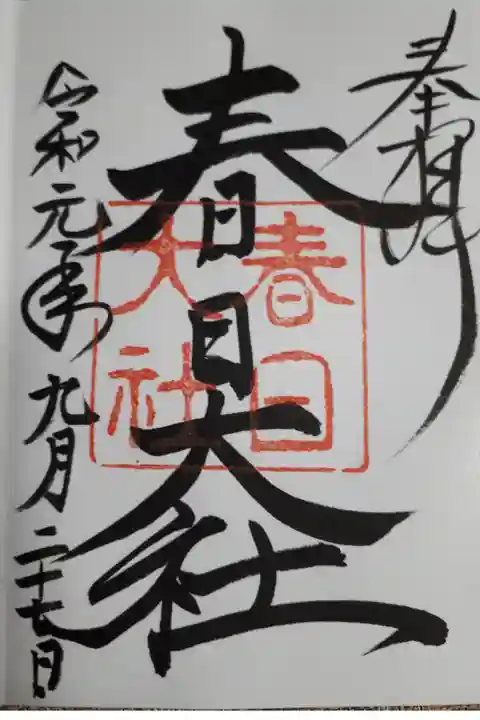 奉拝
春日大社
春日大社
令和元年九月二十七日